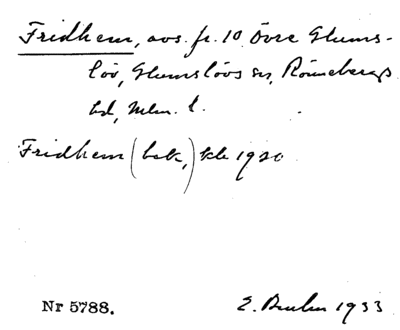 Fridhem, avs. fr. 10 Övre Glums-
löv, Glumslövs sn, Rönnebergs
hd, Mlm. l.
Fridhem (bek,) kb 1920
Nr 5788.
E. 1933